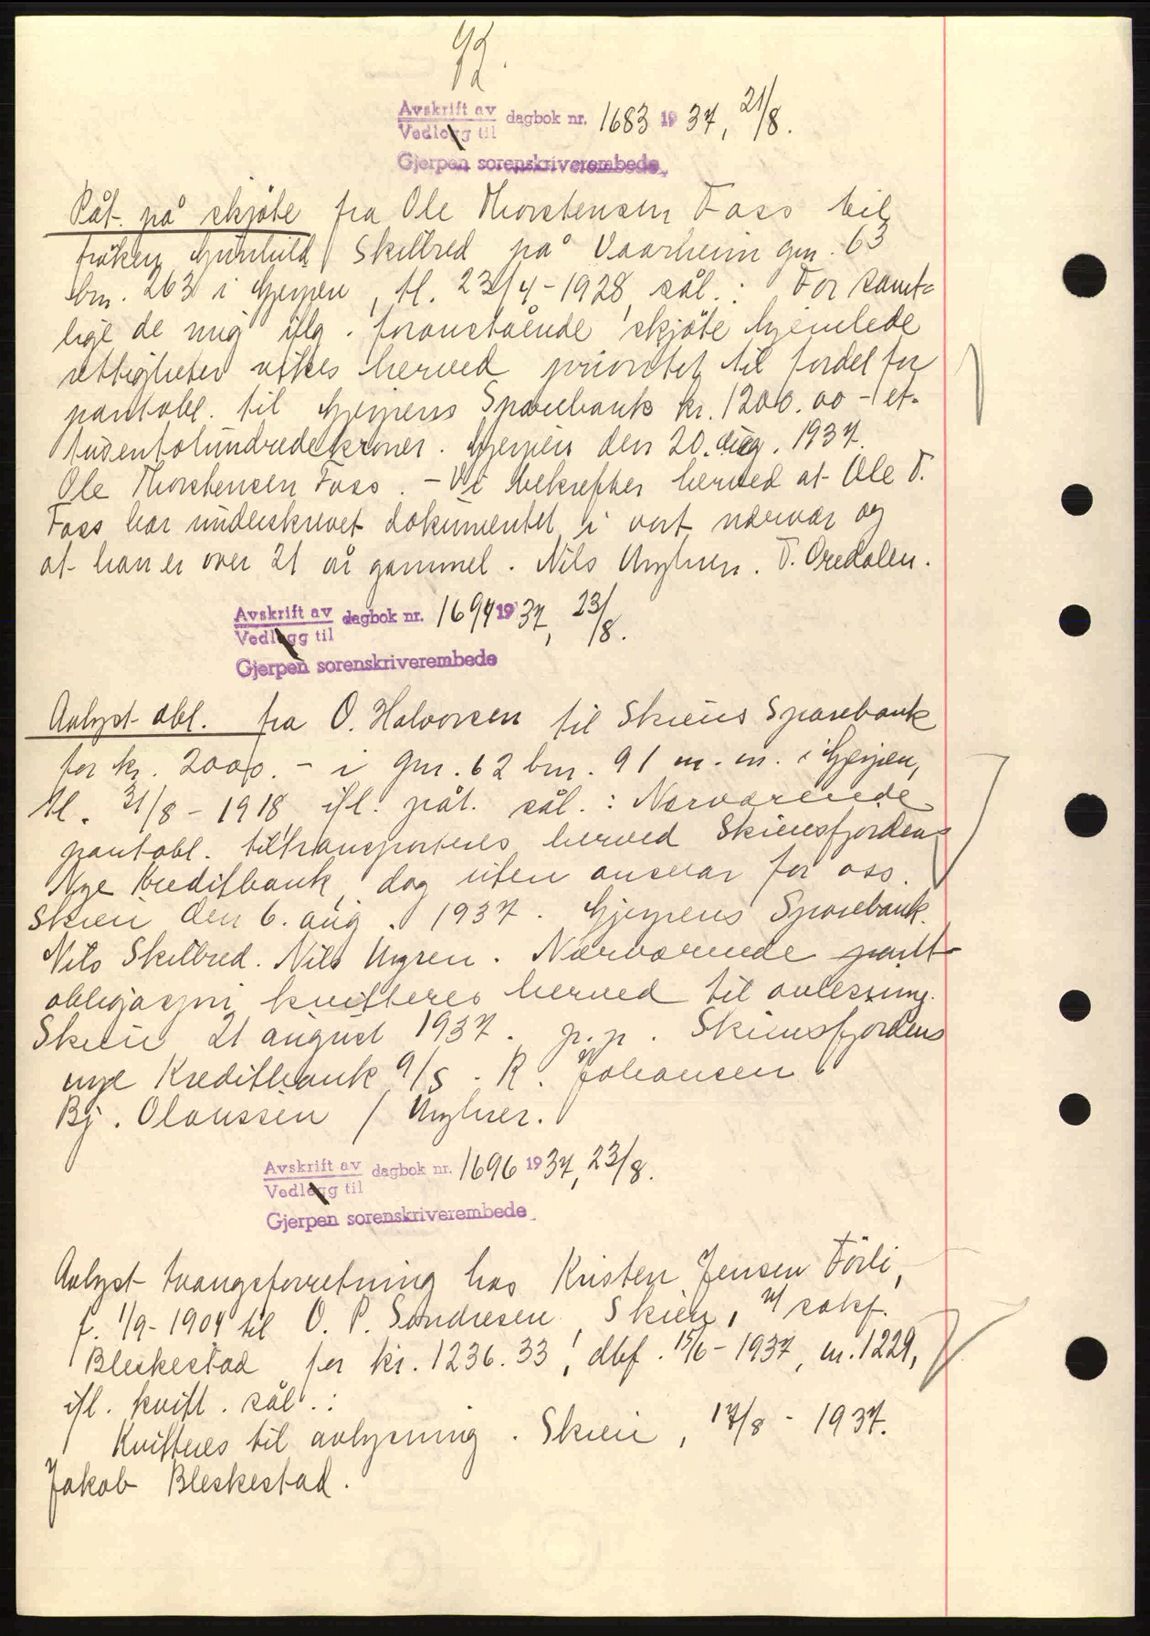 92.
Avskrift av dagbok nr. 1683 1937, 21/8.
Vedlegg til
Gjerpen sorenskriverembede.
Påt. på skjøte fra Ole Thorstensen Foss til
frøken Gunhild Skilbred på Vaarheim gnr. 63
bnr. 263 i Gjerpen, tl. 23/4-1928, sål.: For samt=
lige de mig iflg. foranstående skjøte hjemlede
rettigheter vikes herved prioritet til fordel for
pantobl. til Gjerpens Sparebank kr. 1200.00 - et-
tusentohundredekroner. Gjerpen den 20. aug. 1937.
Ole Thorstensen Foss. - Vi bekrefter herved at Ole T.
Foss har underskrevet dokumentet i vort nærvær og
at han er over 21 år gammel. Nils T. Oredalen.
Avskrift av dagbok nr. 1694 1937, 23/8.
Vedlegg til
Gjerpen sorenskriverembede
Avlyst obl. fra O. Halvorsen til Skiens Sparebank
for kr. 2000.- i gnr. 62 bnr. 91 m. m. i Gjerpen,
tl. 31/8-1918 ifl. påt. sål.: Nærværende
pantobl. tiltransporteres herved Skiensfjordens
Nye Kreditbank, dog uten ansvar for oss.
Skien den 6. aug. 1937. Gjerpens Sparebank.
Nils Skilbred. Nils Nærværende pant
obligasjon kvitteres herved til avlesning.
Skien 21 august 1937. p.p. Skiensfjordens
nye Kreditbank A/S. R. Johansen
Bj. Olaussen /
Avskrift av dagbok nr. 1696 1937, 23/8.
Vedlegg til
Gjerpen sorenskriverembede
Avlyst tvangsforretning hos Kristen Jensen Förli,
f. 1/9-1904 til O. P. Sondresen, Skien, v/ sakf.
Bleskestad for kr. 1236.33, dbf. 15/6-1937, nr. 1229,
ifl. kvitt. sål.:
Kvitteres til avlysning. Skien, 17/8-1937.
Jakob Bleskestad.